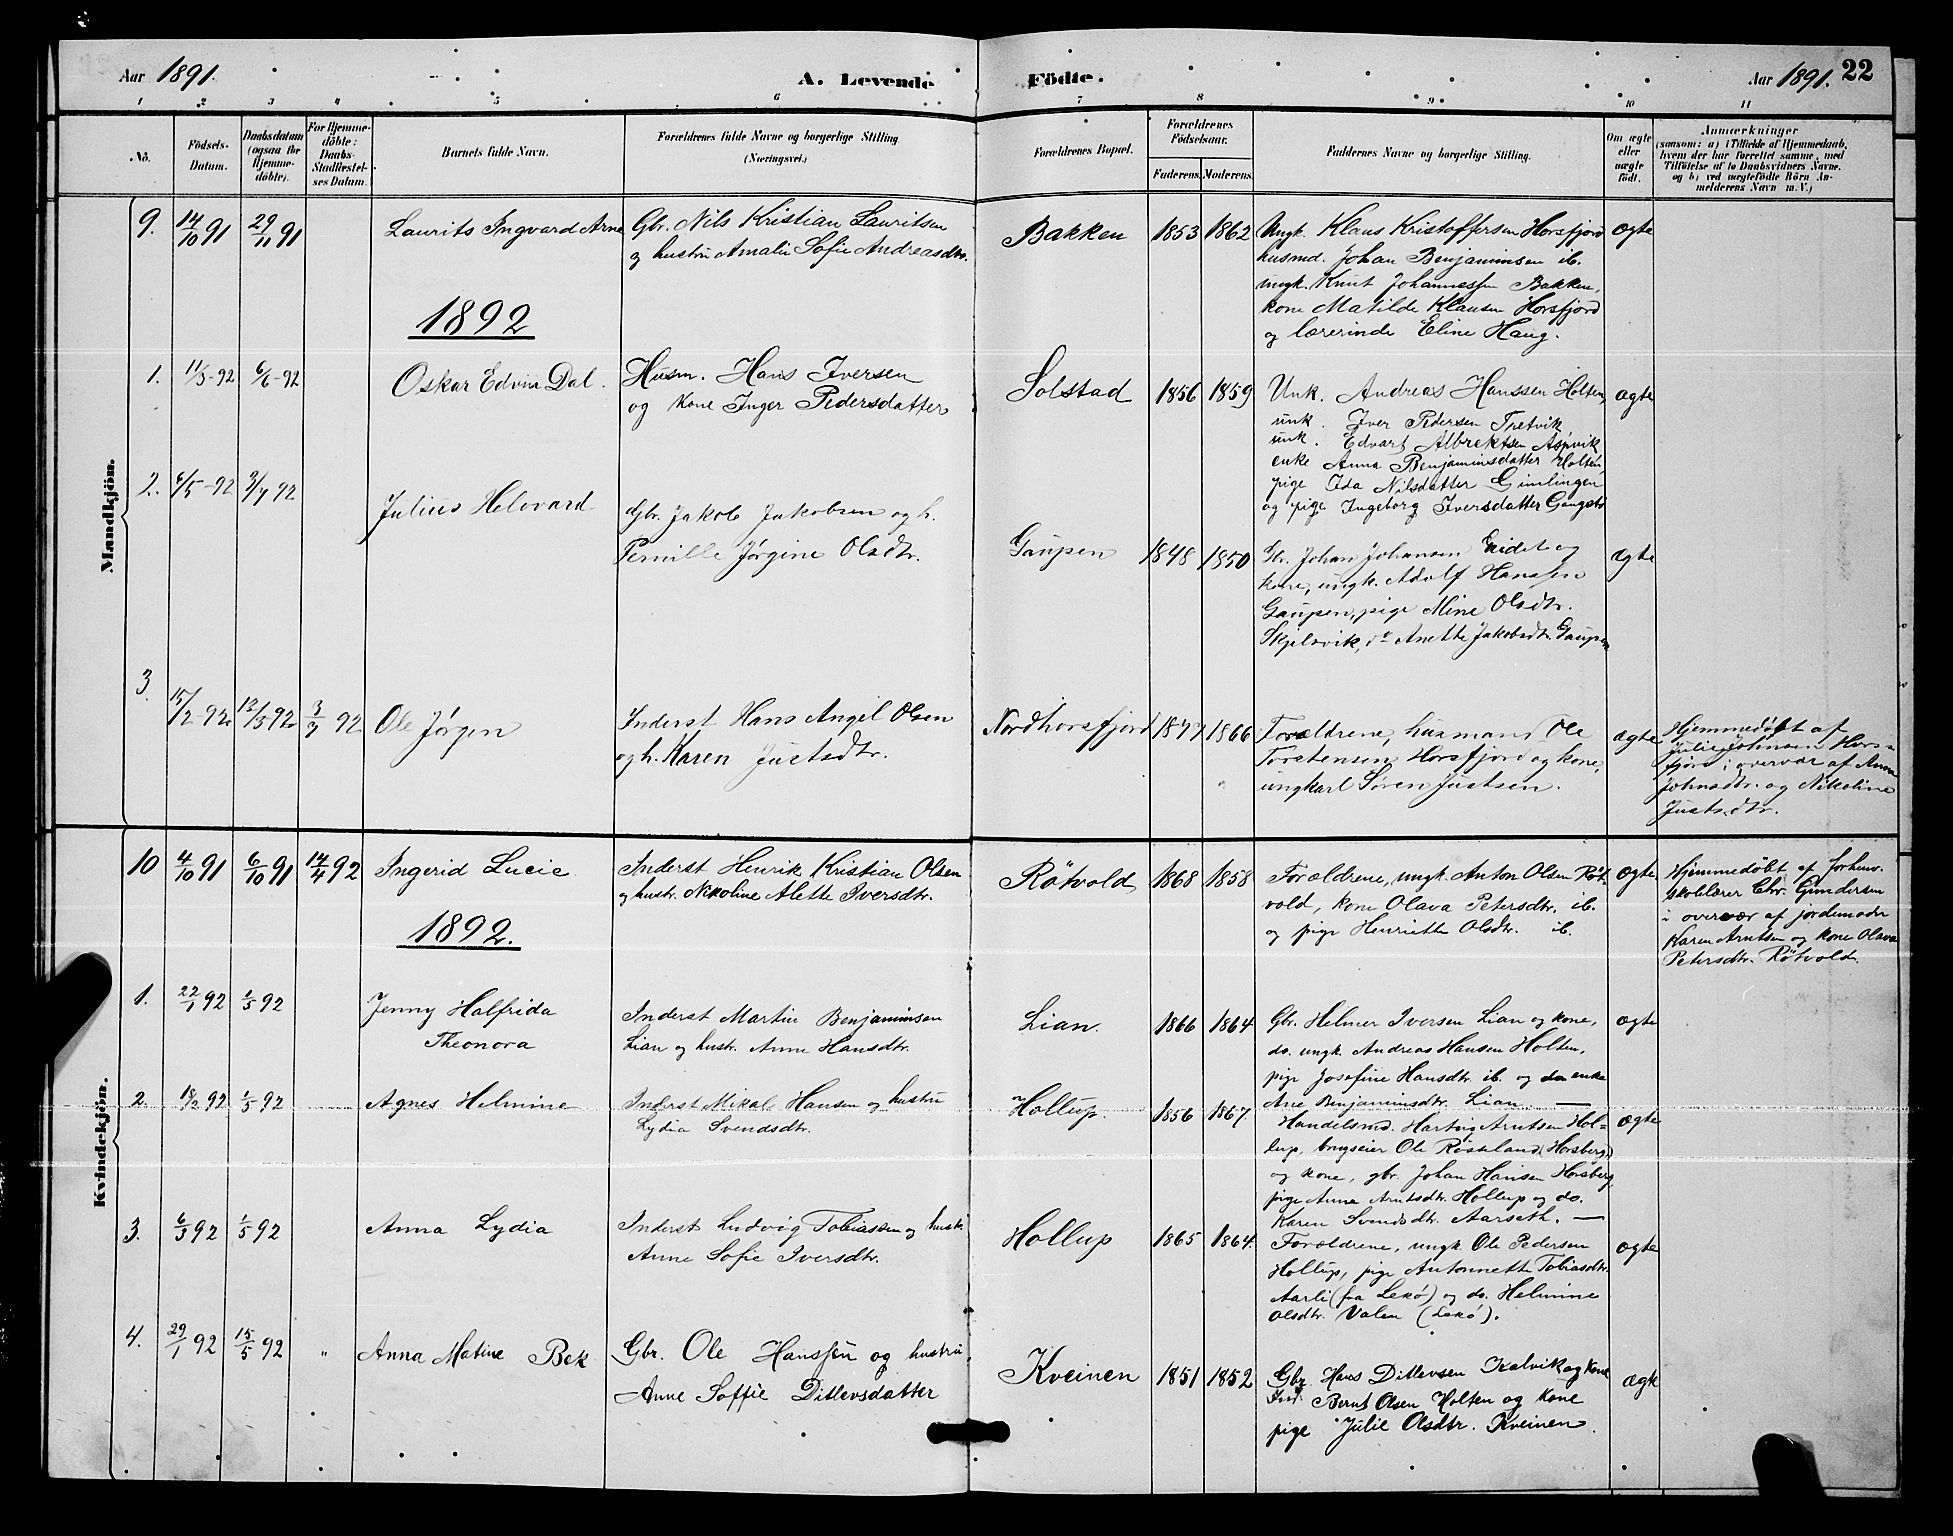 Aar 1891. A. Levende Födte. Aar 1891. 22
1 2 3 4 5 6 7 8 9 10 11
No.
Födsels-
Datum.
Daabsdatum
(ogsaa for
Hjemme-
döbte).
For Hjemme-
döbte:
Daabs-
Stadfæstel-
ses Datum.
Barnets fulde Navn.
Forældrenes fulde Navne og borgerlige Stilling
(Næringsvei.)
Forældrenes Bopæl.
Forældrenes
Födselsaar.
Faderens. Moderens.
Faddernes Navne og borgerlige Stilling.
Om ægte
eller
uægte
födt.
Anmærkninger
(saasom: a) i Tilfælde af Hjemmedaab,
hvem der har forrettet samme, med
Tilföielse af to Daabsvidners Navne.
og b) ved uægtefödte Börn An-
melderens Navn m. V.)
Mandkjön.
9. 14/10 91 29/11 91 Laurits Ingvard Arne
Gbr. Nils Kristian Lauritsen
og hustru Amalie Sofie Andreasdtr.
Bakken 1853 1862
Ungk. Klaus Kristoffersen Horsfjord
husmd. Johan Benjaminsen ib.
ungk. Knut Johannessen Bakken,
kone Matilde Klausen Horsfjord
og lærerinde Eline Haug.
ægte
1892
1. 11/3-92 6/6-92 Oskar Edvin Dal.
Husm. Hans Iversen
og kone Inger Pedersdatter
Solstad 1856 1859
Unk. Andreas Hanssen Holten,
unk. Iver Pedersen Tretvik
unk. Edvart Albrektsen Aspvik
enke Anna Benjaminsdatter Holten,
pige Ida Nilsdatter Gimlingen
og pige Ingeborg Iversdatter
ægte
2. 6/5-92 3/7 92 Julius Helvard
Gbr. Jakob Jakobsen og h.
Pernille Jørgine Olsdtr.
Gaupen 1848 1850
Gbr. Johan Johansen Eidet og
kone, ungk. Adolf Hanssen
Gaupen, pige Mine Olsdtr.
Skjelsvik, do Anette Jakobsdtr. Gaupen
ægte
3 15/2-92 12/3-92 3/7 92 Ole Jørgen
Inderst Hans Angel Olsen
og h. Karen Justsdtr.
Nordhorsfjord 1866
Forældrene, husmand Ole
Torstensen Horsfjord og kone,
ungkarl Søren Justsen.
ægte
Hjemmedøbt af
Julie Johnsen Hors-
fjord i overvær af Anna
Johnsdtr. og Nikoline
Justsdtr.
Kvindekjön.
10 4/10 91 6/10 91 14/4 92 Ingerid Lucie
Inderst Henrik Kristian Olsen
og hustr. Nikoline Alette Iversdtr.
Rötvold 1868 1858
Forældrene, ungk. Anton Olsen Röt-
vold, kone Olava Petersdtr. ib.
og pige Henriette Olsdtr. ib.
ægte
Hjemmedöbt af forhenv.
skolelærer Chr. Gundersen
i overvær af jordemoder
Karen Arntsen og kone Olava
Petersdtr. Rötvold.
1892.
1. 22/1 92 1/5 92 Jenny Halfrida
Theonora
Inderst Martin Benjaminsen
Lian og hustr. Anne Hansdtr.
Lian. 1866 1864
Gbr. Helmer Iversen Lian og kone,
do. ungk. Andreas Hansen Holten,
pige Josefine Hansdtr. ib. og enke
Ane Benjaminsdtr. Lian. —
ægte
2. 18/2 92 1/5 92 Agnes Helmine
Inderst Mikal Hansen og hustru
Lydia Svendsdtr.
Hollup. 1856 1867
Handelsmd. Hartvig Arntsen Hol-
lup, brugseier Ole Røseland (Horsberg)
og kone, gbr. Johan Hansen Horsberg,
pige Anna Arntsdtr. Hollup og do.
Karen Svendsdtr. Aarseth. —
ægte
3. 6/3 92 1/5 92 Anna Lydia
Inderst Ludvig Tobiassen og hustr.
Anne Sofie Iversdtr.
Hollup 1865 1864
Forældrene, ungk. Ole Pedersen
Hollup, pige Antonnette Tobiasdtr.
Aarli (fra Lekö) og do. Helmine
Olsdtr. Valen (Lekö).
ægte
4. 29/1 92 15/5 92 " Anna Matine Bek
Gbr. Ole Hanssen og hustru
Anne Soffie Ditlevsdatter
Kveinen 1851 1852
Gbr Hans Ditlevsen Kalvik og kone
Ind. Bernt Olsen Holten og kone
pige Julie Olsdtr. Kveinen.
ægte